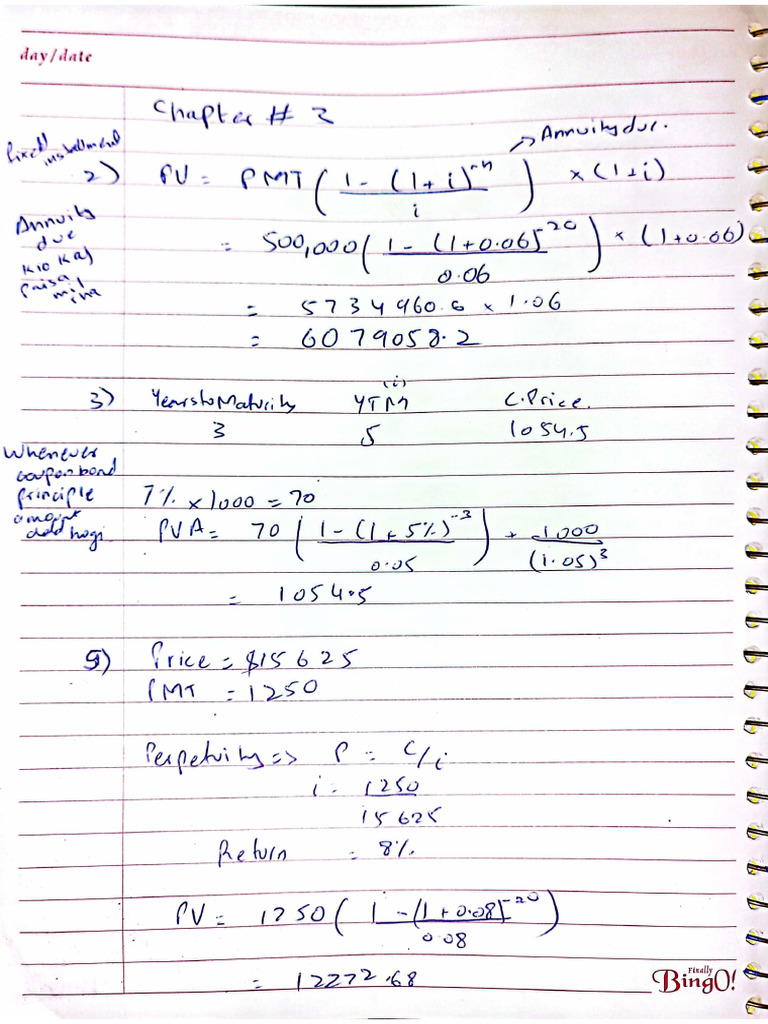 day/date
Chapter # 2
Fixed installment
→ Annuity due.
2) PV = PMT ( 1 - (1+i)^-n / i ) × (1+i)
Annuity
due
kio kaj
paisa
mil
= 500,000 ( 1 - (1+0.06)^-20 / 0.06 ) × (1+0.06)
= 5734960.6 × 1.06
= 6079058.2
(i)
3) Years to Maturity YTM C.Price.
3 5 1054.5
Whenever
coupon bond
principle
amount
add hogi.
7% × 1000 = 70
PVA = 70 ( 1 - (1+5%)^-3 / 0.05 ) + 1000 / (1.05)^3
= 1054.5
5) Price = $15625
PMT = 1250
Perpetuity => P = C/i
i = 1250 / 15625
Return = 8%
PV = 1250 ( 1 - (1+0.08)^-20 / 0.08 )
= 12272.68
Finally
BingO!